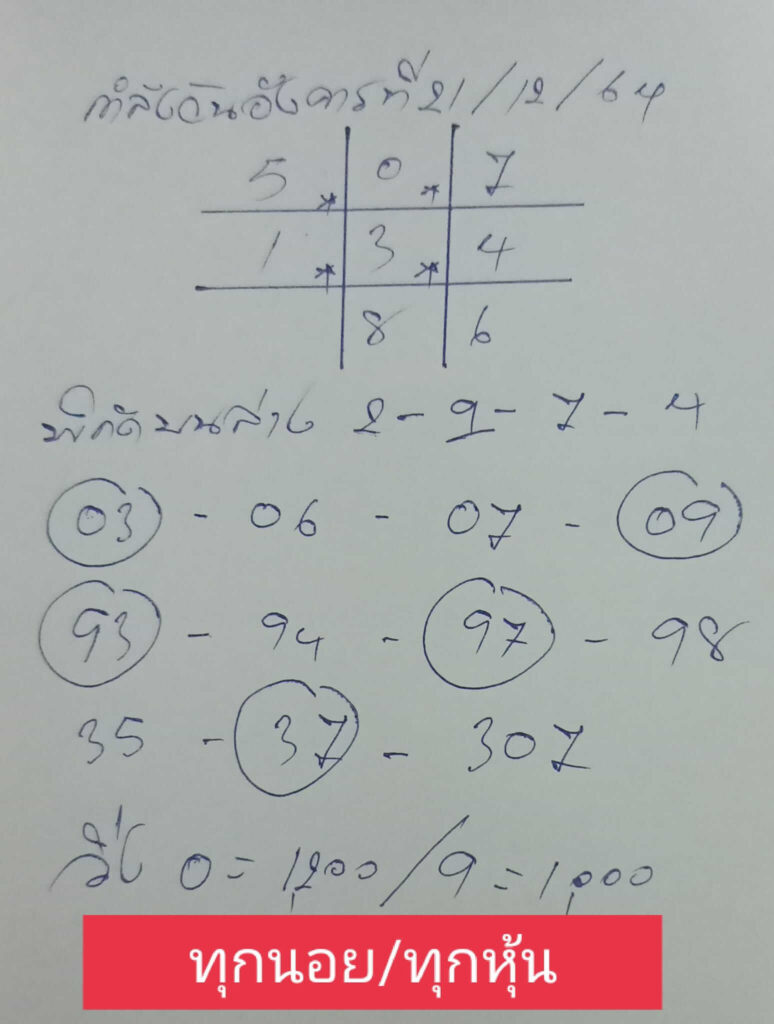 กำลังวันอังคารที่ 21/12/64
5 * 0 * 7
1 * 3 * 4
8 6
พิกัดบนล่าง 2 - 9 - 7 - 4
03 - 06 - 07 - 09
93 - 94 - 97 - 98
35 - 37 - 307
วิ่ง 0 = 1,200 / 9 = 1,000
ทุกนอย/ทุกหุ้น